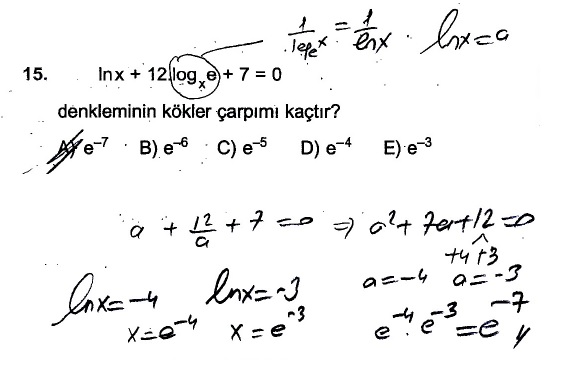 1/log_e x = 1/lnx · lnx = a
15. lnx + 12.log_x e + 7 = 0
denkleminin kökler çarpımı kaçtır?
A) e⁻⁷ B) e⁻⁶ C) e⁻⁵ D) e⁻⁴ E) e⁻³
a + 12/a + 7 = 0 ⇒ a² + 7a + 12 = 0
+4 +3
lnx = -4 lnx = -3 a = -4 a = -3
x = e⁻⁴ x = e⁻³ e⁻⁴ . e⁻³ = e⁻⁷